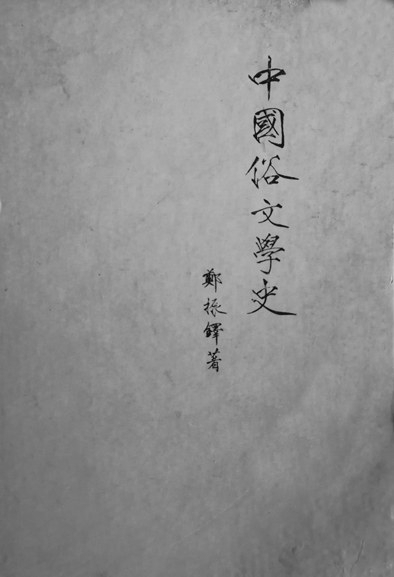 中國俗文學史
鄭振鐸著